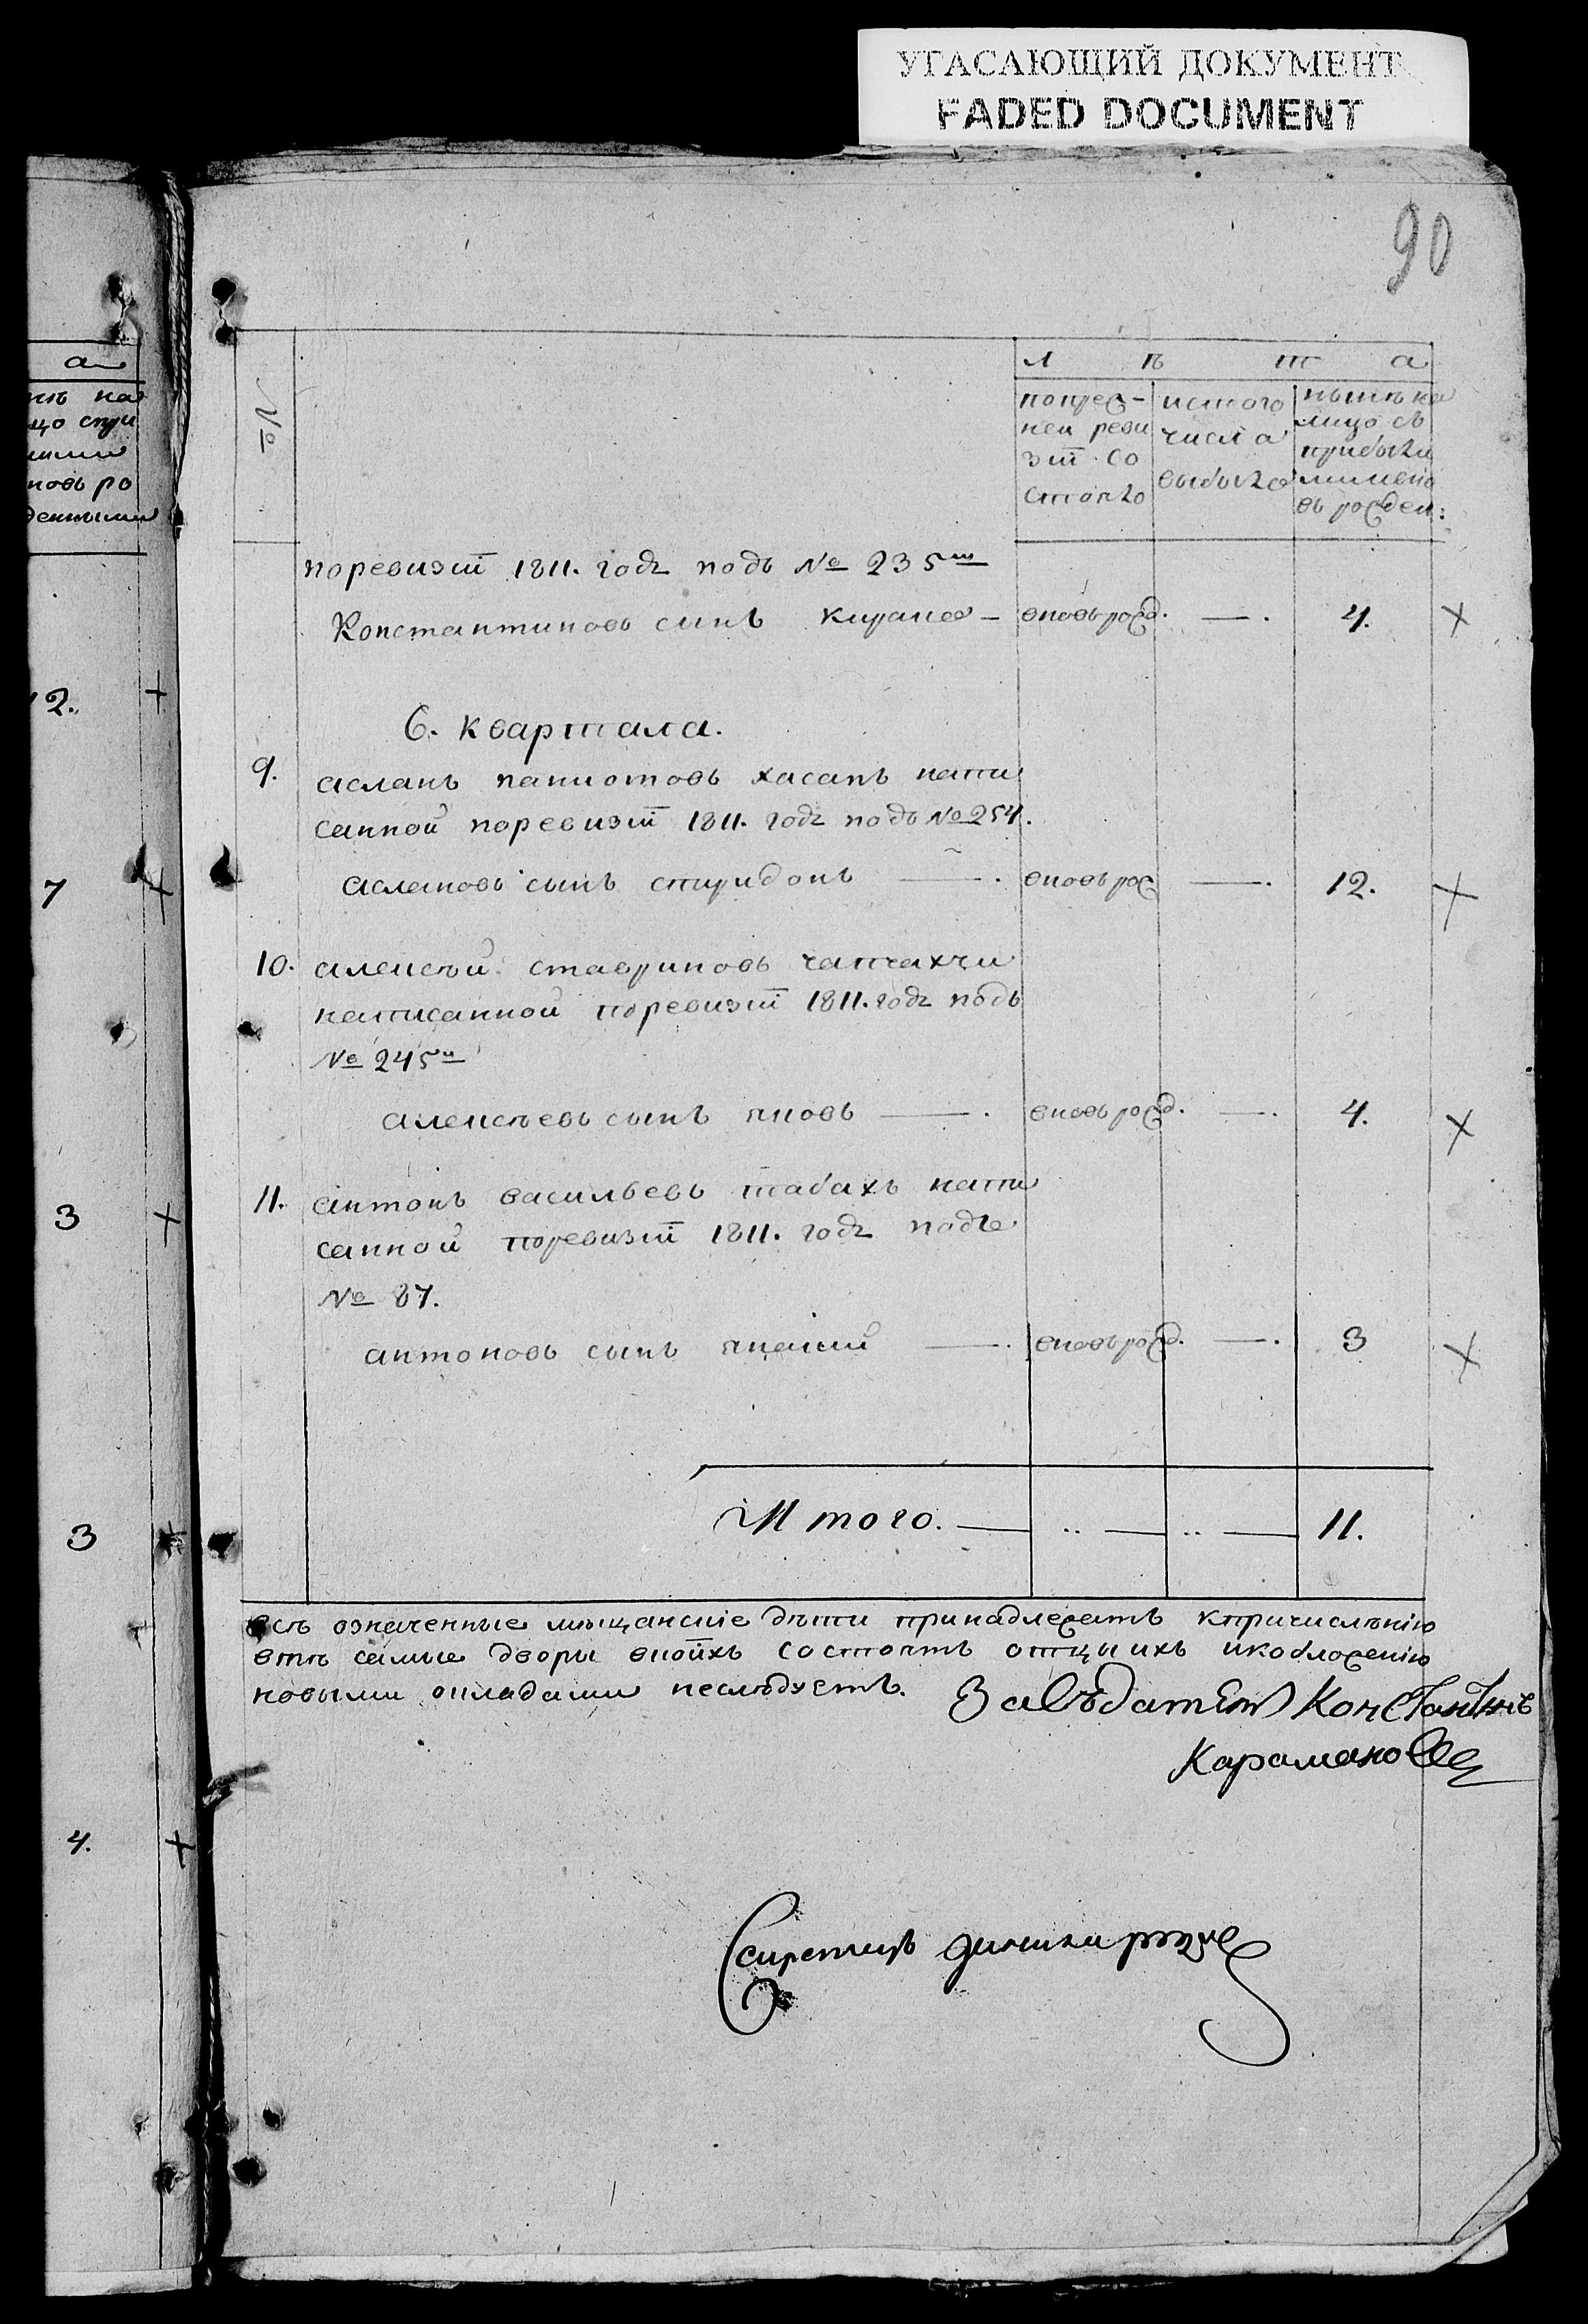 УГАСАЮЩИЙ ДОКУМЕНТ
FADED DOCUMENT
90
а
нѣ на
цо съ при
ними
новь ро
денными
12.
7
3
3
4.
№
л ѣ т а
попрез-
ней реви
зіи со
стояло
истого
числа
выбыло
нынѣ на
лицо съ
прибылы
ми вно
вь рожден:
поревизіи 1811. года подъ № 235м
Константиновъ сынъ — вновьрожд. — . 4. ×
6. квартала.
9. асланъ паниотовъ хасапъ напи
санной поревизіи 1811. года подъ № 254.
аслановъ сынъ спиридонъ — . вновьрож — . 12. ×
10. алексѣй ставриновъ чапчахчи
написанной поревизіи 1811. года подъ
№ 245м
алексѣевъ сынъ яковъ — . вновьрожд. — . 4. ×
11. антонъ васильевъ табахъ напи
санной поревизіи 1811. года подъ
№ 87.
антоновъ сынъ — . вновьрожд. — . 3 ×
Итого. — .. — .. — 11.
всѣ означенные мѣщанскіе дѣти принадлежатъ къпричисленію
втѣ самые дворы вкоихъ состоятъ отцы ихъ икобложенію
новыми окладами неслѣдуетъ. Засѣдатель Константинъ
Караманов